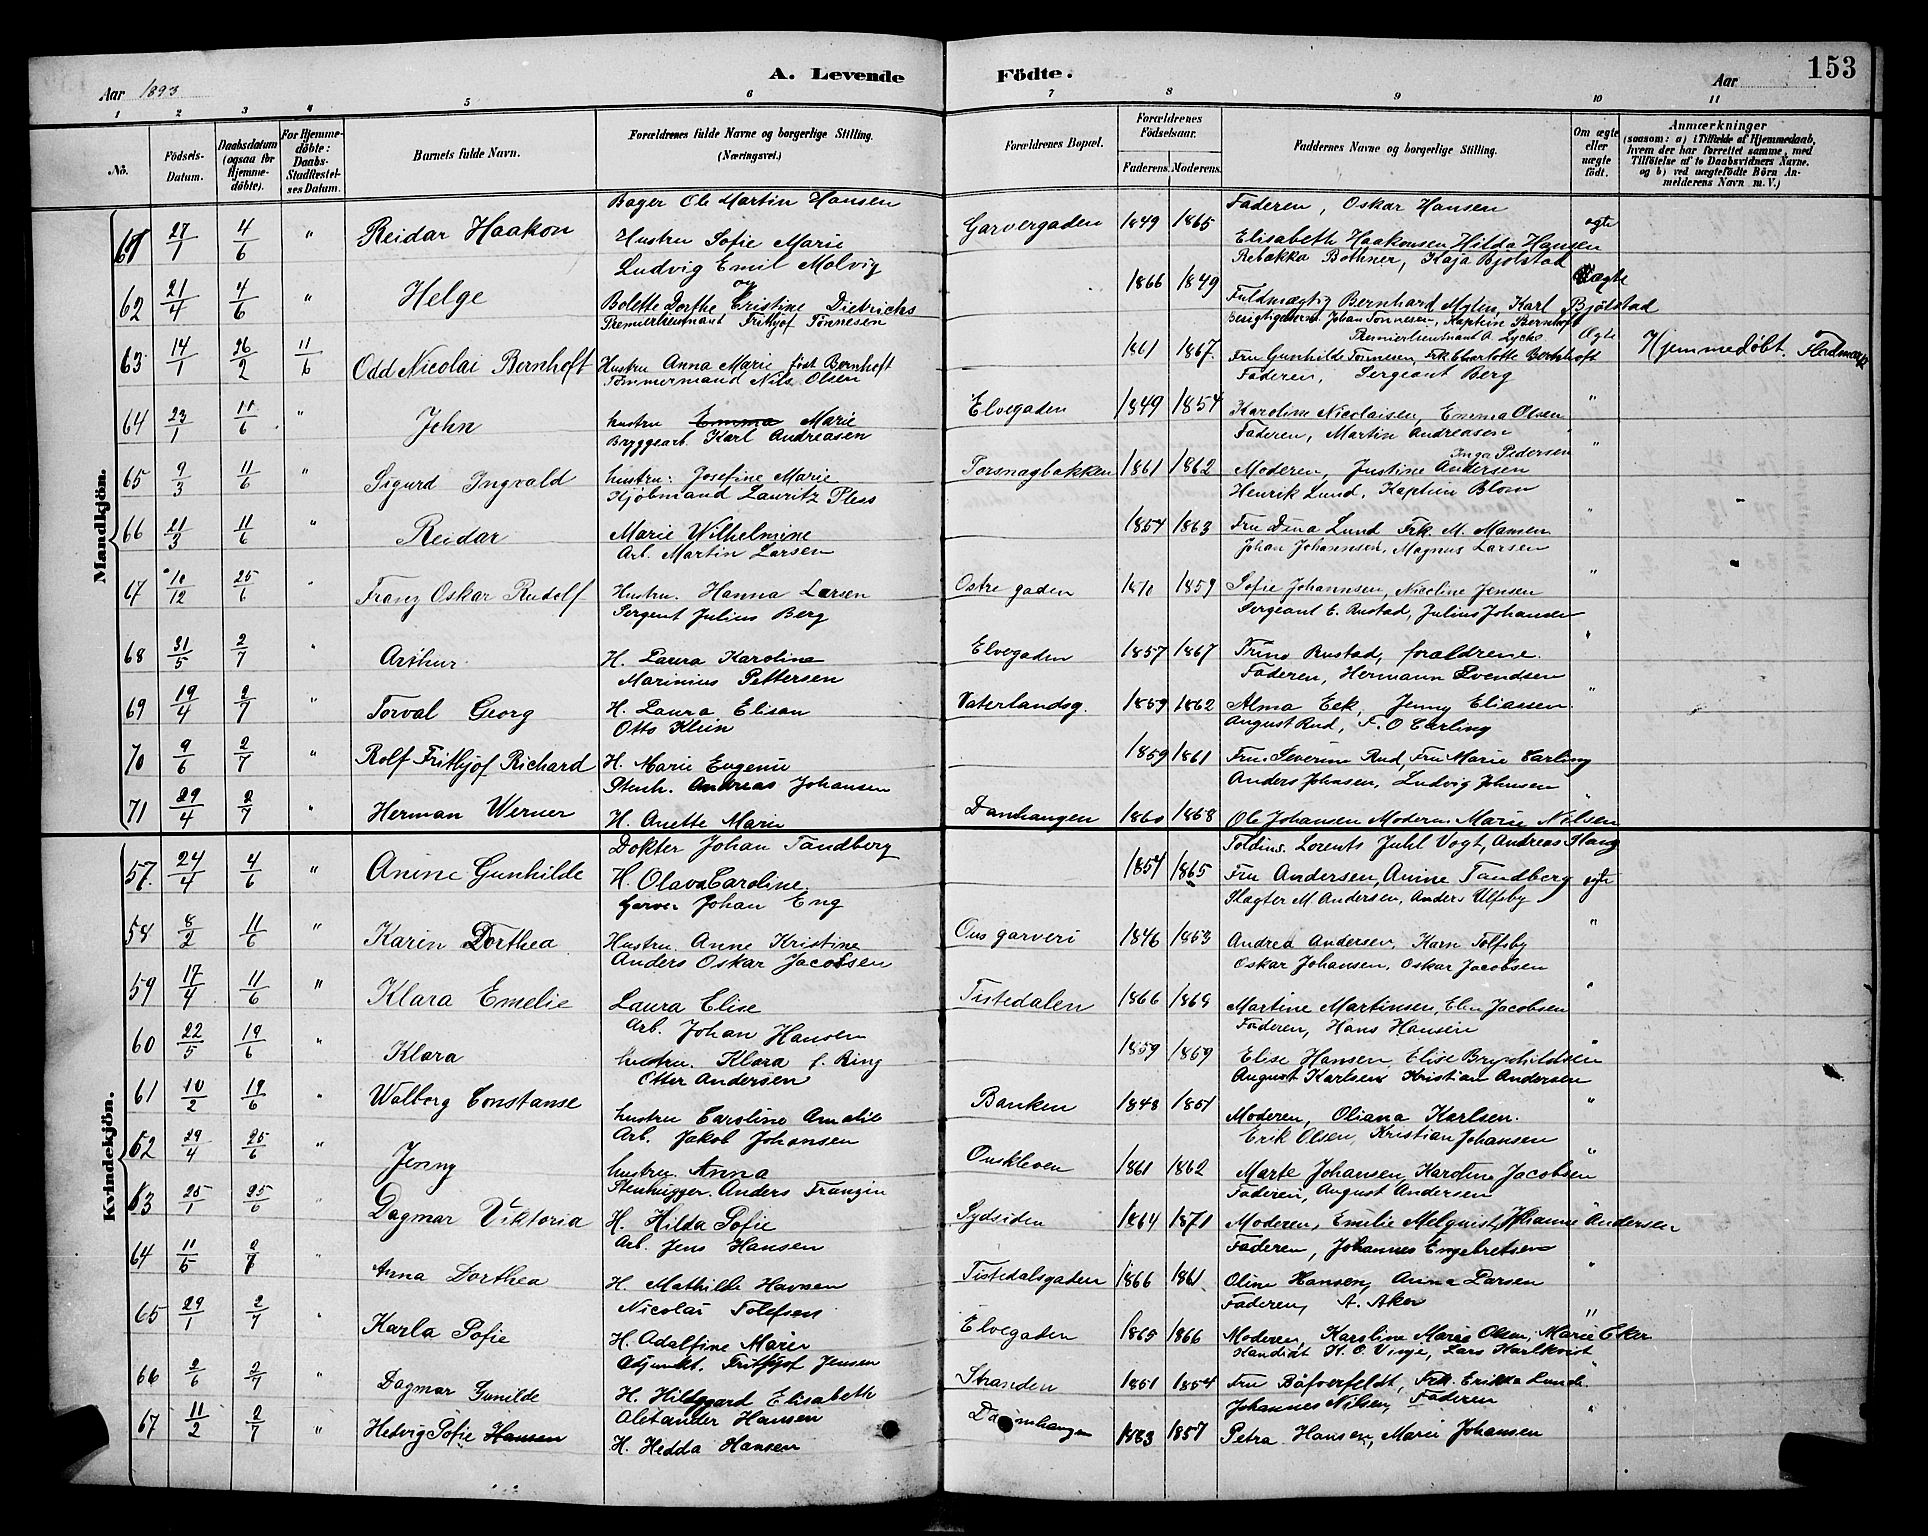 Aar 1893
A. Levende Födte.
Aar
153
1 2 3 4 5 6 7 8 9 10 11
No.
Födsels-Datum.
Daabsdatum (ogsaa for Hjemme-döbte).
For Hjemme-döbte: Daabs-Stadfæstel-ses Datum.
Barnets fulde Navn.
Forældrenes fulde Navne og borgerlige Stilling. (Næringsvei.)
Forældrenes Bopæl.
Forældrenes Födselsaar.
Faderens. Moderens.
Faddernes Navne og borgerlige Stilling.
Om ægte eller uægte födt.
Anmærkninger (saasom: a) i Tilfælde af Hjemmedaab, hvem der har forrettet samme, med Tilföielse af to Daabsvidners Navne, og b) ved uægtefödte Börn An-melderens Navn m. V.)
Mandkjön.
Bager Ole Martin Hansen Faderen, Oskar Hansen
61 27/1 4/6 " Reidar Haakon Hustru Sofie Marie Garvergaden 1849 1865 Elisabeth Haakonsen Hilda Hansen ægte
Ludvig Emil Molvig Rebekka Bothner, Kaja Bjölstad
62 21/4 4/6 " Helge og Bolette Dorthe Cristine Dietrichs 1866 1849 Fuldmægtig Bernhard Mylen, Karl Bjölstad uægte
Premierleutnant Frithjof Tönnesen Johan Tönnesen, Kaptein Bernhoft
Premierlieutnant A. Lycke
63 14/1 26/2 11/6 Odd Nicolai Bernhoft Hustru Anna Marie föd Bernhoft 1861 1867 Fru Gunhilde Tönnesen, Frk. Charlotte Bernhoft Ægte Hjemmedöbt.
Tömmermand Nils Olsen Faderen, Sergeant Berg
64 23/1 11/6 " John hustru Emma Marie Elvegaden 1849 1854 Karoline Nicolaisen, Emma Olsen "
Bryggearb. Karl Andreasen Faderen, Martin Andreasen
Inga Pedersen
65 9/3 11/6 " Sigurd Ingvald hustru: Josefine Marie Torsnagbakken 1861 1862 Moderen, Justine Andersen "
Kjöbmand Lauritz Pless Henrik Lund, Kaptein Blom
66 21/3 11/6 " Reidar Marie Wilhelmine 1854 1863 Fru Dina Lund Frk. M. Mansen "
Arb. Martin Larsen Johan Johannsen, Magnus Larsen
67 10/12 25/6 " Franz Oskar Rudolf Hustru. Hanna Larsen Ostre gaden 1859 Sofie Johannsen, Nicoline Jensen "
Sergent Julius Berg Sergeant E. Rustad, Julius Johansen
68 31/5 2/7 " Arthur. H. Laura Karoline Elvegaden 1857 1867 Trine Rustad, forældrene. "
Marinius Pettersen Faderen, Hermann Svendsen
69 19/4 2/7 " Torval Georg H. Laura Elisan Vaterlandsg. 1859 1862 Alma Eek, Jenny Eliassen "
Otto Klein August Rud, F. O Earling
70 9/6 2/7 " Rolf Frithjof Richard H. Marie Eugenie 1859 1861 Fru. Severine Rud, Fru Marie Earling
Stenh. Andreas Johansen Anders Johnsen, Ludvig Johnsen
71 29/4 2/7 " Herman Werner H. Anette Marie Damhaugen 1860 1858 Ole Johansen Moderen. Marie Nilsen "
Kvindekjön.
Dokter Johan Tandberg Toldins. Lorents Juhl Vogt, Andreas Stang
57. 24/4 4/6 " Anine Gunhilde H. Olava Caroline, 1854 1865 Fru Andersen, Anine Tandberg ægte
Garver Johan Eng Slagter M. Andersen, Anders Ulfsby
58 8/2 11/6 " Karin Dorthea Hustru. Anne Kristine Ous garveri 1846 1853 Andrea Andersen, Karn Tolfsby "
Anders Oskar Jacobsen Oskar Johansen, Oskar Jacobsen
59 17/4 11/6 " Klara Emelie Laura Elise Tistedalen 1866 1869 Martine Martinsen, Elen Jacobsen "
Arb. Johan Hansen Faderen, Hans Hansen
60 22/5 19/6 " Klara hustru. Klara f. Ring 1859 1859 Elise Hansen, Elise Brynhildsen "
Otter Andersen August Karlsen Kristian Andersen
61 10/2 19/6 " Walborg Constanse hustru Caroline Amalie Banken 1848 1851 Moderen, Oliana Karlsen. "
Arb. Jakob Johansen Erik Olsen, Kristian Johansen
62 29/4 25/6 " Jenny hustru. Anna Ouskleven 1861 1862 Marte Johansen, Karoline Jacobsen "
Stenhugger. Anders Franzin Faderen, August Andersen
63 25/1 25/6 " Dagmar Viktoria H. Hilda Sofie Sydsiden 1864 1871 Moderen, Emilie Melqvist, Johanne Andersen "
Arb. Jens Hansen Faderen, Johannes Engebretsen
64 11/5 2/7 " Anna Dorthea H. Mathilde Hansen Tistedalsgaden 1866 1861 Oline Hansen, Anna Larsen "
Nicolai Tolefsen Faderen, A. Aker
65 29/1 2/7 " Karla Sofie H. Adalfine Marie Elvegaden 1865 1866 Moderen, Karoline Marie Olsen, Marie Eker "
Adjunkt. Frithjof Jensen Kandidat K. O. Vinje, Lars Karlkvist
66 2/6 2/7 " Dagmar Gunilde H. Hildegard Elisabeth Stranden 1851 1854 Fru Böfverfeldt, Frk. Erikka Lunde. "
Alexander Hansen Johannes Nilsen, Faderen
67 11/2 2/7 " Hedvig Sofie Hansen H. Hedda Hansen Damhaugen 1853 1857 Petra Hansen, Marie Johansen "